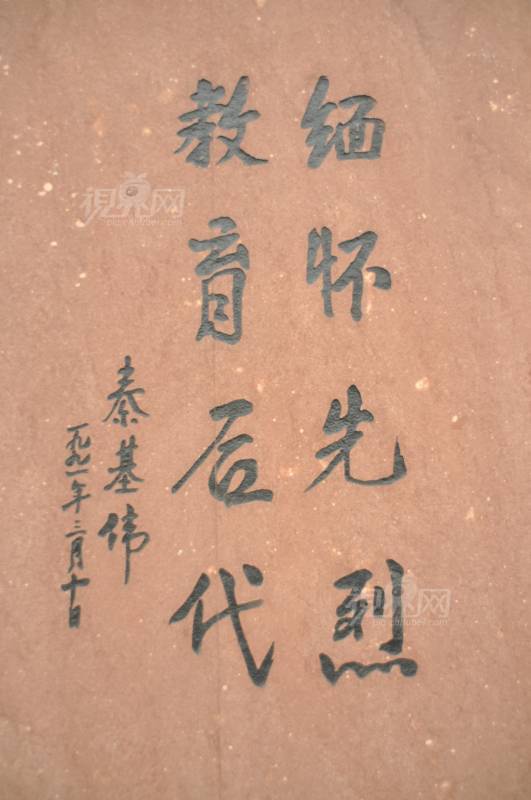 缅怀先烈
教育后代
秦基伟
一九九一年三月十日
視覺网
視覺网